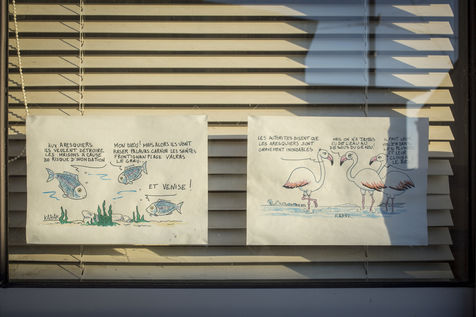 AUX ARESQUIERS
ILS VEULENT DÉTRUIRE
LES MAISONS A CAUSE
DU RISQUE D'INONDATION
MON DIEU! MAIS ALORS ILS VONT
RASER PALAVAS CARNON LES SAINTES
FRONTIGNAN PLAGE VALRAS
LE GRAU
ET VENISE!
LES AUTORITES DISENT QUE
LES ARESQUIERS SONT
GRAVEMENT INONDABLES
MAIS ON N'A JAMAIS
VU DE L'EAU AU
DESSUS DU GENOU
IL FAUT